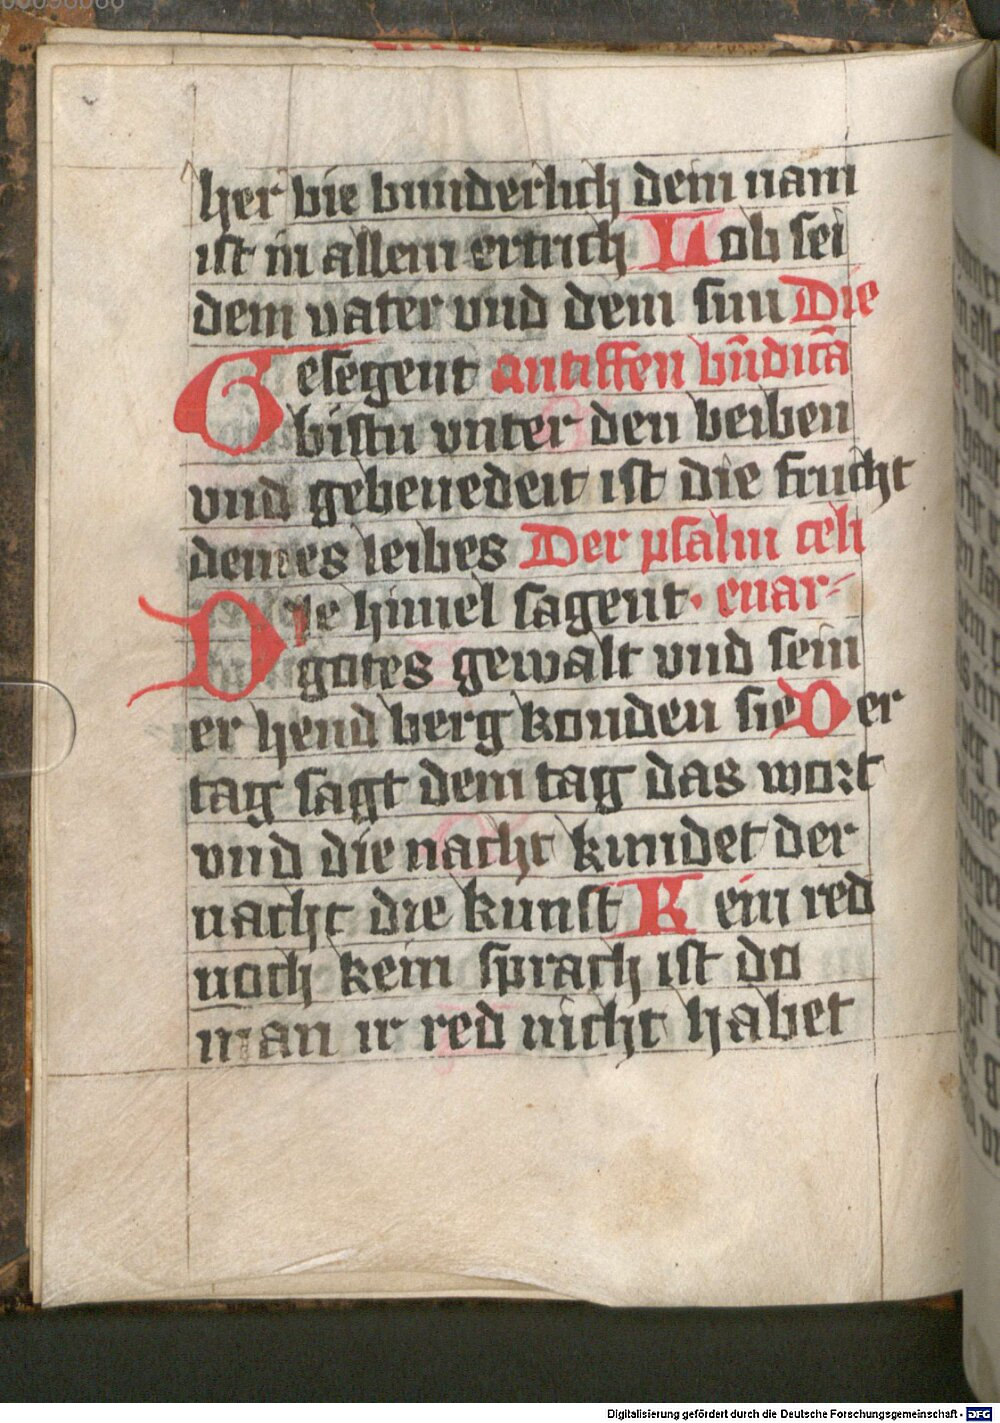 her bie bunderlich dein nam
ist in allem ertrich Lob sei
dem vater vnd dem sun Die
Gesegent antiffen bn̄dictā
bistu vnter den beiben
vnd gebenedeit ist die frucht
deines leibes Der psalm celi
Die himel sagent · enar-
gotes gewalt vnd sein
er hend berg konden sie Der
tag sagt dem tag das wort
vnd die nacht kundet der
nacht die kunst Kein red
noch kein sprach ist do
man ir red nicht habet
Digitalisierung gefördert durch die Deutsche Forschungsgemeinschaft - DFG